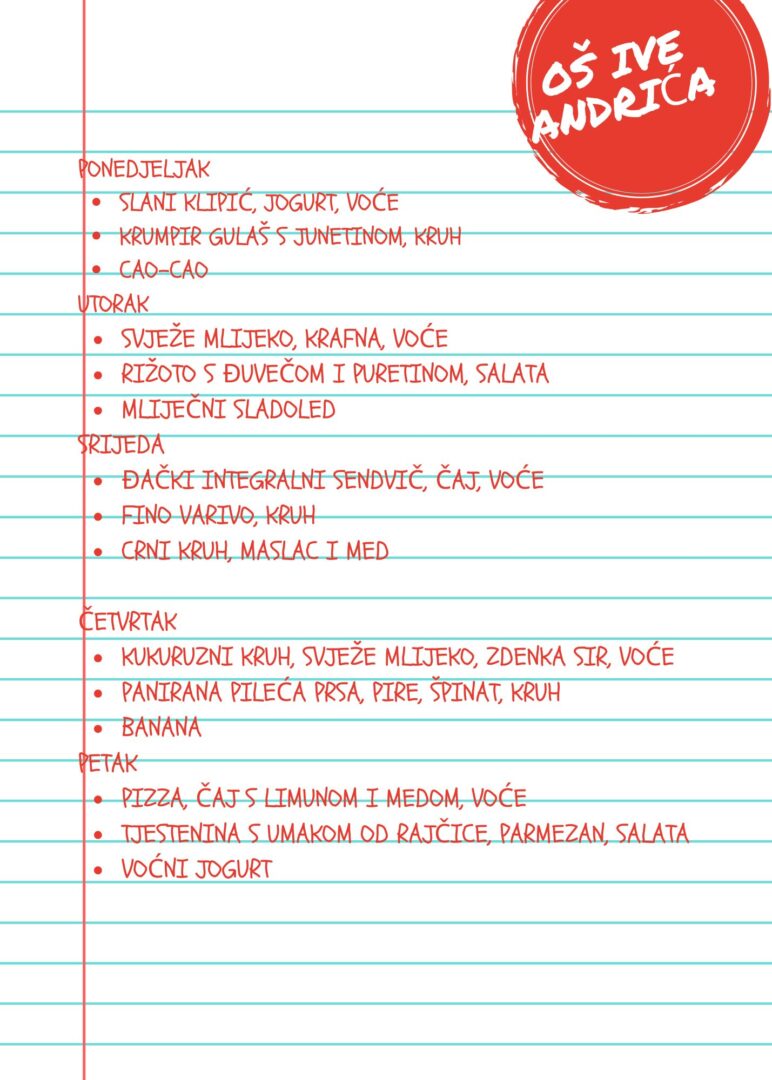 OŠ IVE
ANDRIĆA
PONEDJELJAK
• SLANI KLIPIĆ, JOGURT, VOĆE
• KRUMPIR GULAŠ S JUNETINOM, KRUH
• CAO-CAO
UTORAK
• SVJEŽE MLIJEKO, KRAFNA, VOĆE
• RIŽOTO S ĐUVEČOM I PURETINOM, SALATA
• MLIJEČNI SLADOLED
SRIJEDA
• ĐAČKI INTEGRALNI SENDVIČ, ČAJ, VOĆE
• FINO VARIVO, KRUH
• CRNI KRUH, MASLAC I MED
ČETVRTAK
• KUKURUZNI KRUH, SVJEŽE MLIJEKO, ZDENKA SIR, VOĆE
• PANIRANA PILEĆA PRSA, PIRE, ŠPINAT, KRUH
• BANANA
PETAK
• PIZZA, ČAJ S LIMUNOM I MEDOM, VOĆE
• TJESTENINA S UMAKOM OD RAJČICE, PARMEZAN, SALATA
• VOĆNI JOGURT